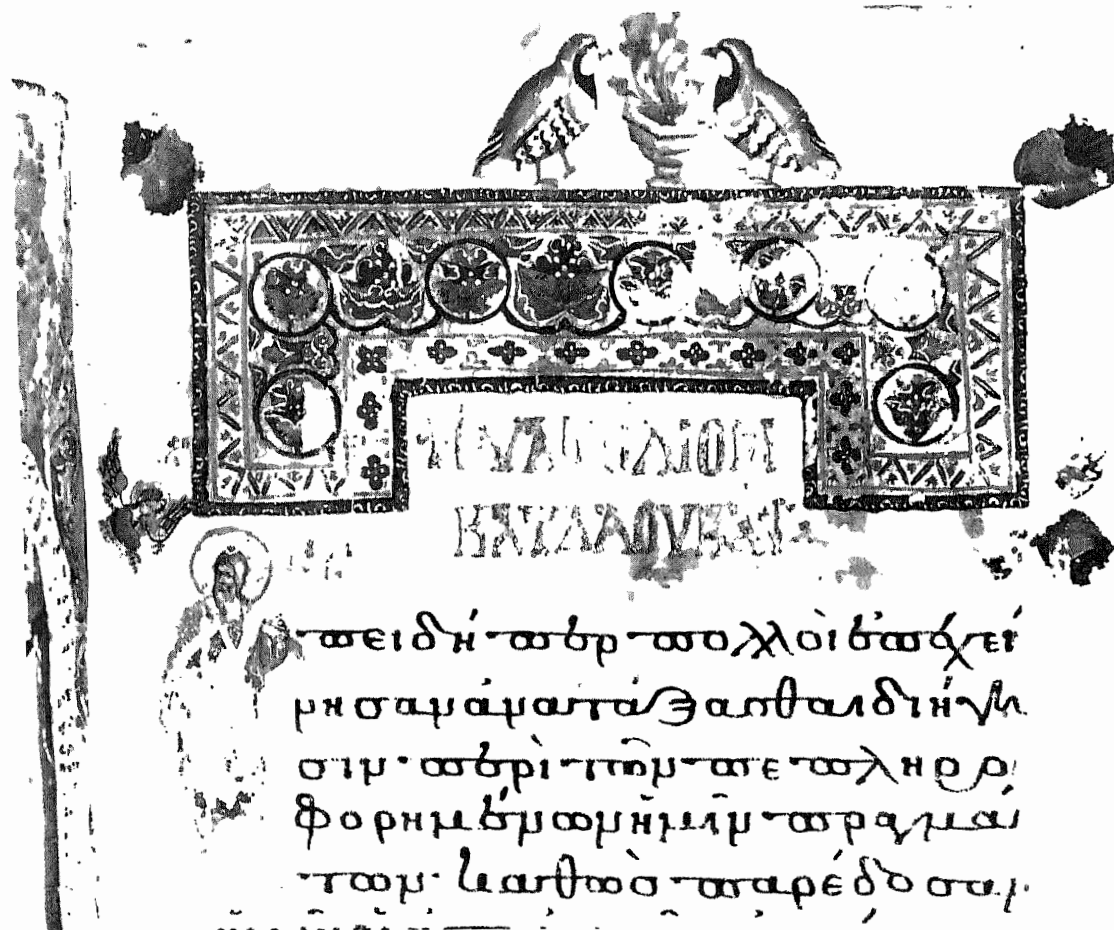 ΕΥΑΓΓΕΛΙΟΝ
ΚΑΤΑ ΛΟΥΚΑΝ
πειδήπερ πολλοὶ ἐπεχεί
ρησαν ἀνατάξασθαι διήγη
σιν· περὶ τῶν πεπληρο
φορημένων ἡμῖν πραγμά
των· καθὼς παρέδοσαν